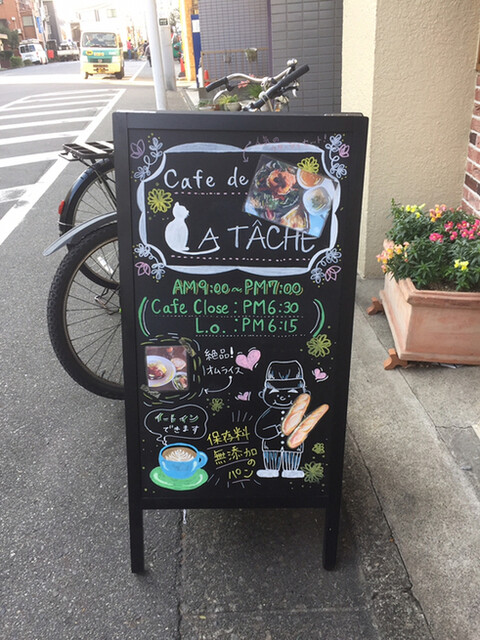 Cafe de
LA TÂCHE
AM9:00~PM7:00
Cafe Close:PM6:30
L.o. :PM6:15
絶品!
オムライス
イートイン
できます
保存料
無添加
の
パン